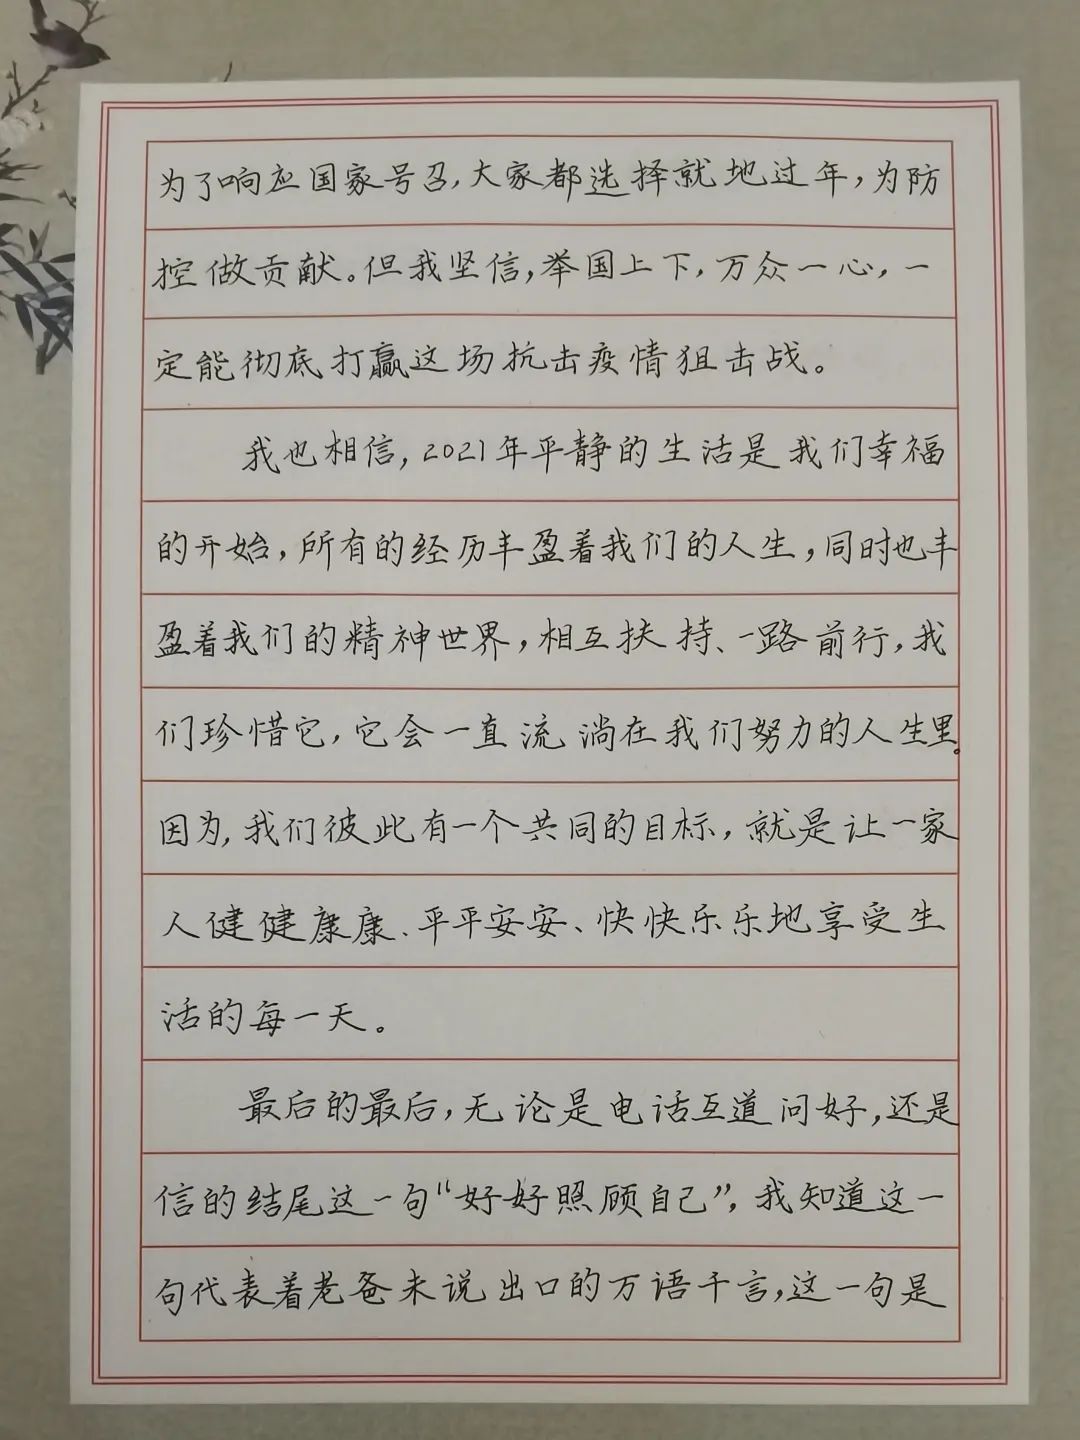 为了响应国家号召,大家都选择就地过年,为防
控做贡献。但我坚信,举国上下,万众一心,一
定能彻底打赢这场抗击疫情狙击战。
我也相信,2021年平静的生活是我们幸福
的开始,所有的经历丰盈着我们的人生,同时也丰
盈着我们的精神世界,相互扶持、一路前行,我
们珍惜它,它会一直流淌在我们努力的人生里。
因为,我们彼此有一个共同的目标,就是让一家
人健健康康、平平安安、快快乐乐地享受生
活的每一天。
最后的最后,无论是电话互道问好,还是
信的结尾这一句“好好照顾自己”,我知道这一
句代表着老爸未说出口的万语千言,这一句是